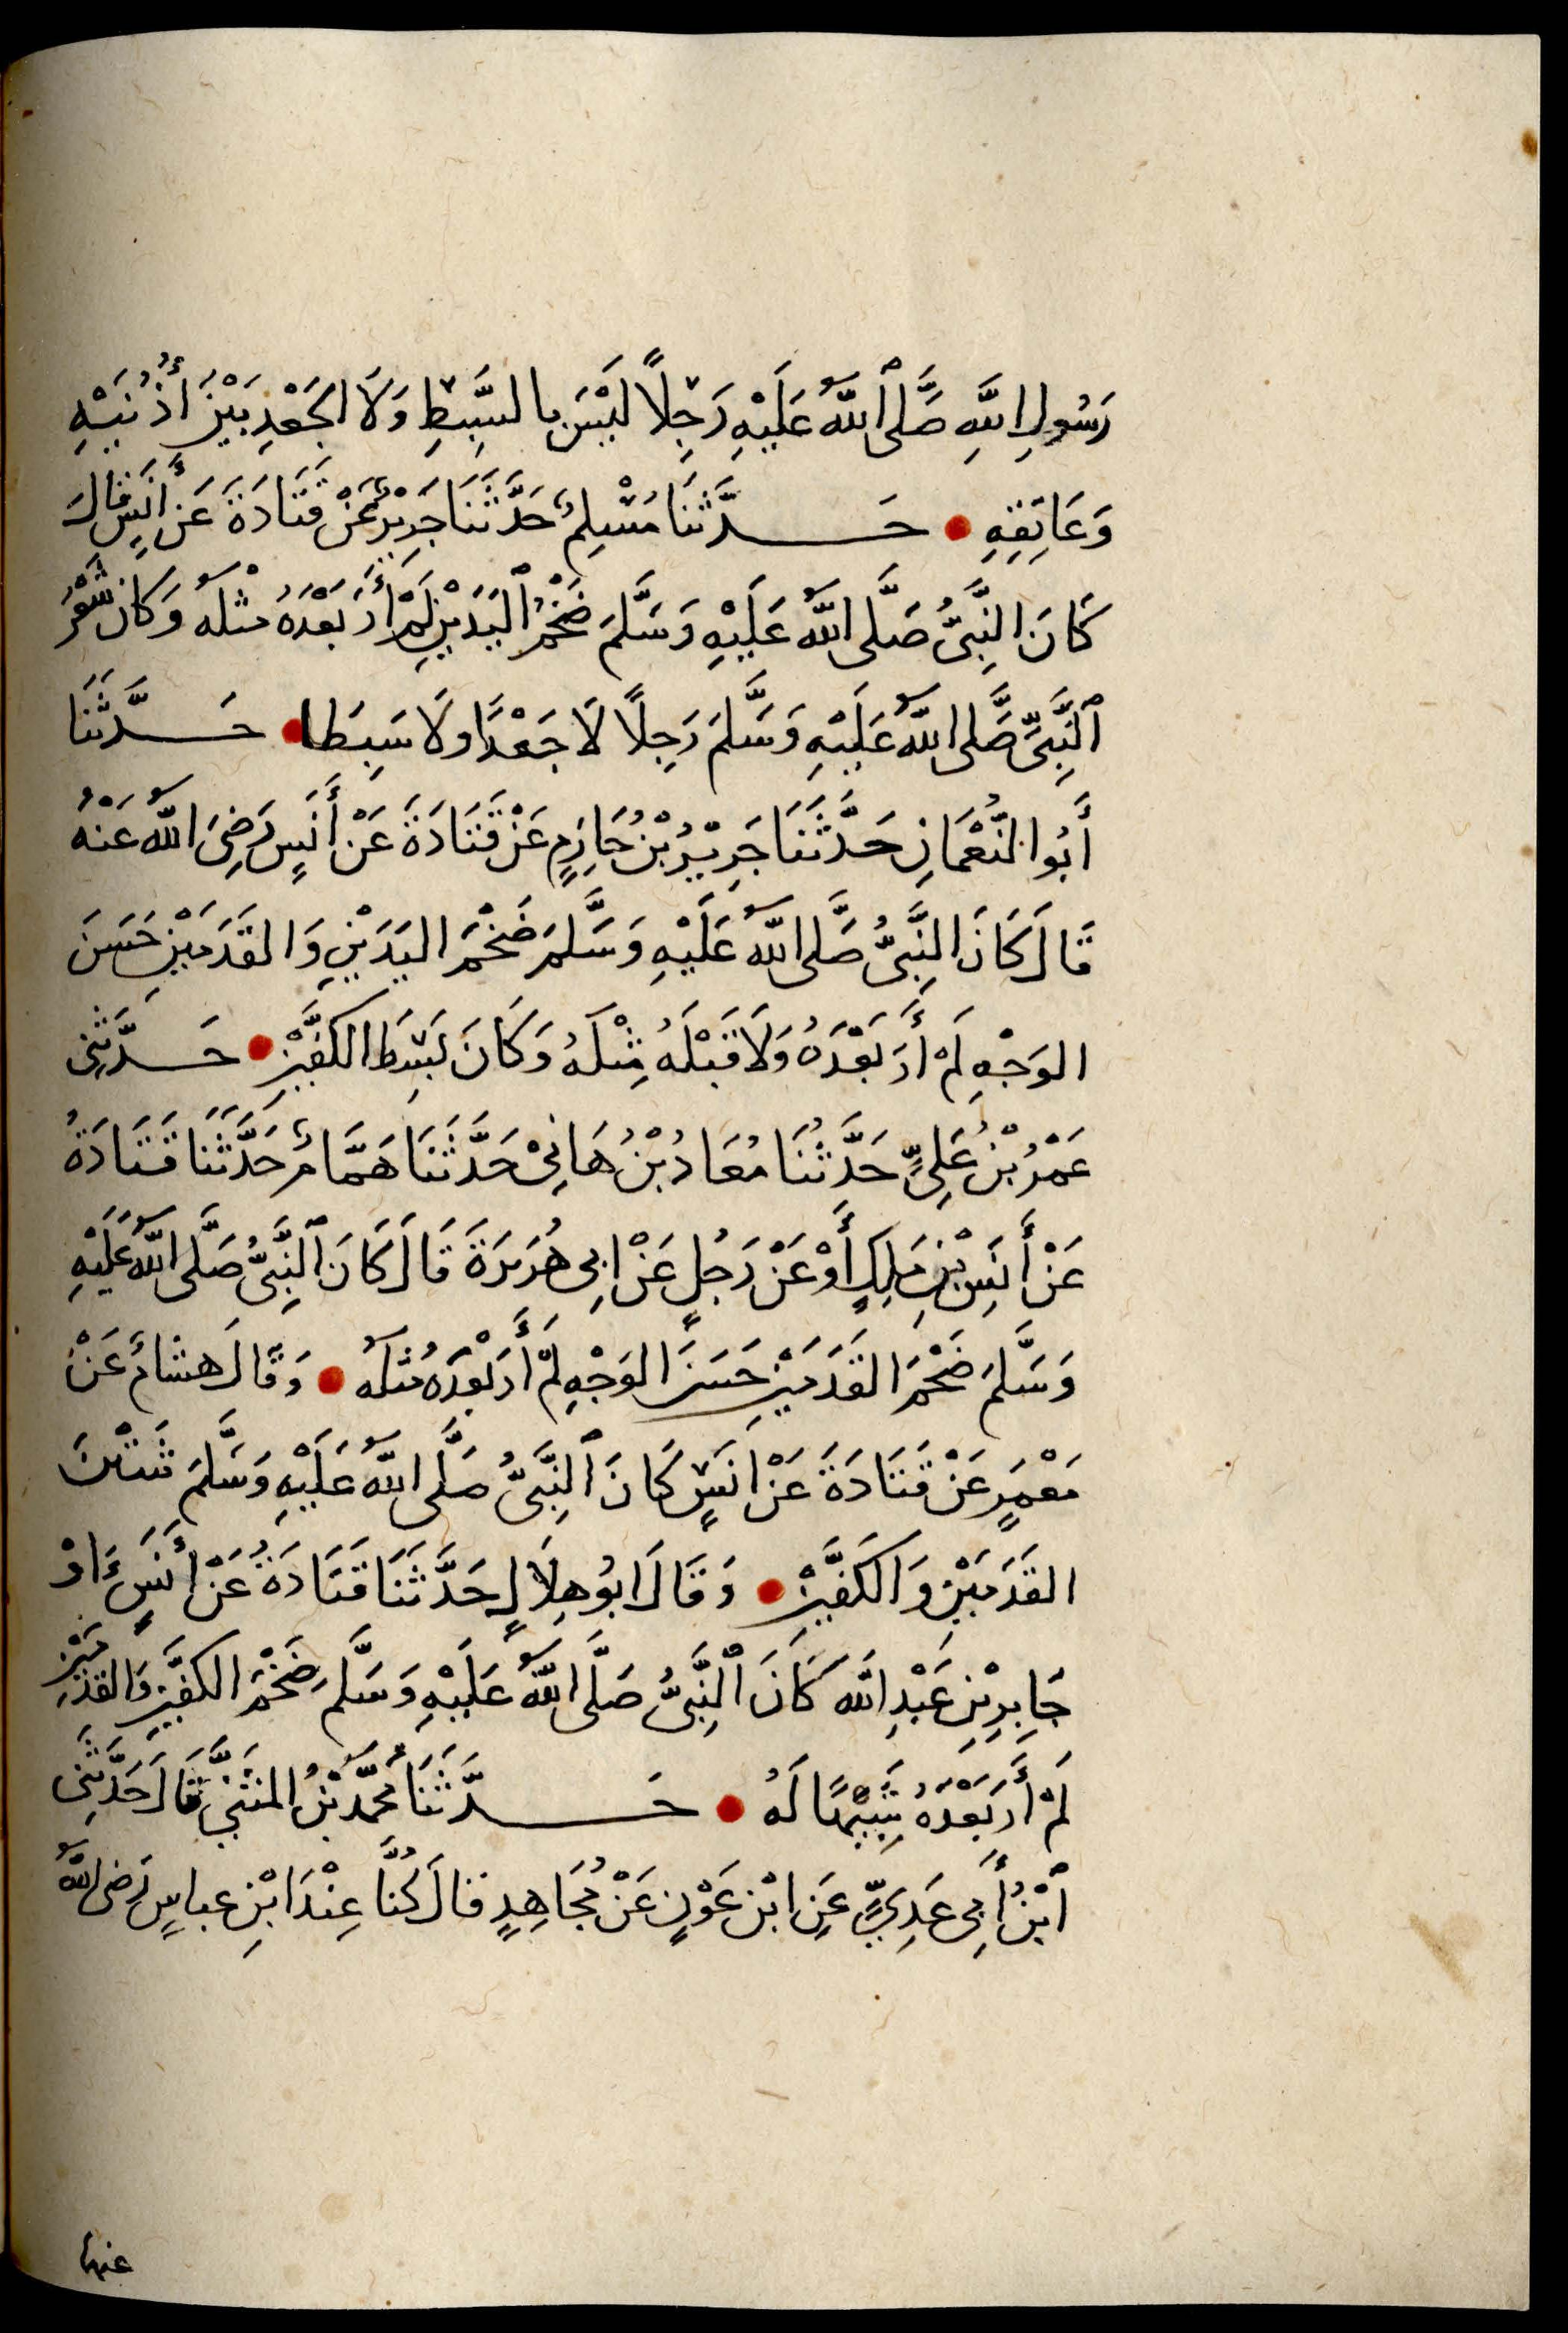 رَسُولِ اللَّهِ صَلَّى ٱللَّهُ عَلَيْهِ رَجِلًا لَيْسَ بِالسَّبِطِ وَلَا الجَعْدِ بَيْنَ أُذُنَيْهِ
وَعَاتِقِهِ • حَدَّثَنَا مُسْلِمٌ حَدَّثَنَا جَرِيْرٌ عَنْ قَتَادَةَ عَنْ أَنَسٍ قَالَ
كَانَ النَّبِيُّ صَلَّى اللَّهُ عَلَيْهِ وَسَلَّمَ ضَخْمَ ٱليَدَيْنِ لَمْ أَرَ بَعْدَهُ مثْلَهُ وَكَانَ شَعْرُ
ٱلنَّبِيِّ صَلَّى اللَّهُ عَلَيْهِ وَسَلَّمَ رَجِلًا لَا جَعْدًا ولَا سَبِطَا • حَدَّثَنَا
أَبُو النُّعْمَانِ حَدَّثَنَا جَرِيْرُ بْنُ حَازِمٍ عَنْ قَتَادَةَ عَنْ أَنَسٍ رَضِيَ اللَّهُ عَنْهُ
قَالَ كَانَ النَّبِيُّ صَلَّى اللَّهُ عَلَيْهِ وَسَلَّمَ ضَخْمَ اليَدَيْنِ وَالقَدَمَيْنِ حَسَنَ
الوَجْهِ لَمْ أَرَ بَعْدَهُ وَلَا قَبْلَهُ مِثْلَهُ وَكَانَ بَسِطَ الكَفَّيْنِ • حَدَّثَنِي
عَمْرُ بْنُ عَلِيٍّ حَدَّثَنَا مُعَاذُ بْنُ هَانِيْ حَدَّثَنَا هَمَّامٌ حَدَّثَنَا قَتَادَةُ
عَنْ أَنَسِ بْنِ مَالِكٍ أَوْ عَنْ رَجُلٍ عَنْ ابِي هُرَيرَةَ قَالَ كَانَ ٱلنَّبِيُّ صَلَّى اللَّهُ عَلَيْهِ
وَسَلَّمَ ضَخْمَ القَدَمَيْنِ حَسَنَ الوَجْهِ لَمْ أَرَ بَعْدَهُ مثلَهُ • وَقَالَ هشامٌ عَنْ
مَعْمَرٍ عَنْ قَتَادَةَ عَنْ انَسٍ كَانَ ٱلنَّبِيُّ صَلَّى اللَّهُ عَلَيْهِ وَسَلَّمَ شَثْنَ
القَدَمَيْنِ وَالكَفَّيْنِ • وَقَالَ ابُو هِلَالٍ حَدَّثَنَا قَتَادَةُ عَنْ أَنَسٍ اوْ
جَابِرِ بْنِ عَبْدِ اللَّه كَانَ ٱلنَّبِيُّ صَلَّى اللَّهُ عَلَيْهِ وَسَلَّمَ ضَخْمَ الكَفَّيْنِ وَالقَدَمَيْنِ
لَمْ أَرَ بَعْدَهُ شَبِيْهًا لَهُ • حَدَّثَنَا مُحَمَّدُ بْنُ المثَنَّى قَالَ حَدَّثَنِي
ٱبْنُ أَبِي عَدِيٍّ عَنِ ابْنِ عَوْنٍ عَنْ مُجَاهِدٍ قالَ كُنَّا عِنْدَ ابْنِ عباسٍ رَضِيَ اللَّهُ
عنهما